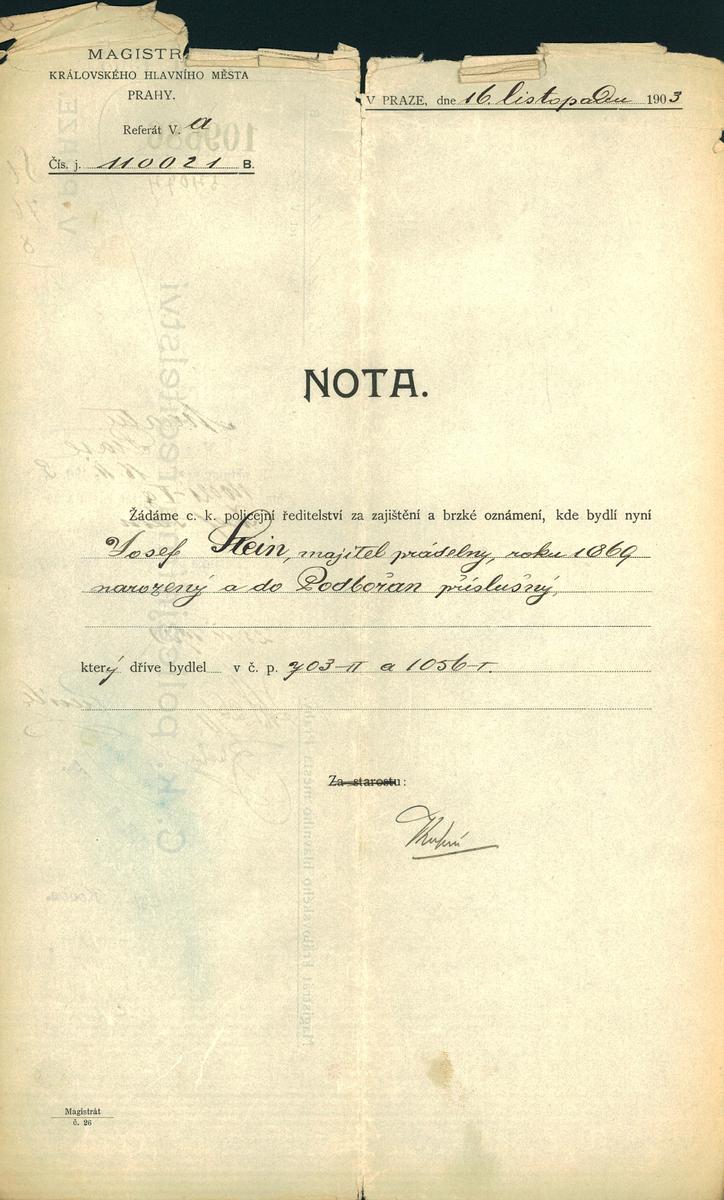 MAGISTR
KRÁLOVSKÉHO HLAVNÍHO MĚSTA
PRAHY.
Referát V. a
Čís. j. 110021 B.
V PRAZE, dne 16. listopadu 1903
NOTA.
Žádáme c. k. policejní ředitelství za zajištění a brzké oznámení, kde bydlí nyní
Josef Stein, majitel prádelny, roku 1869
narozený a do Podbořan příslušný,
který dříve bydlel v č. p. 703-II a 1056-I.
Za starostu:
Magistrát
č. 26